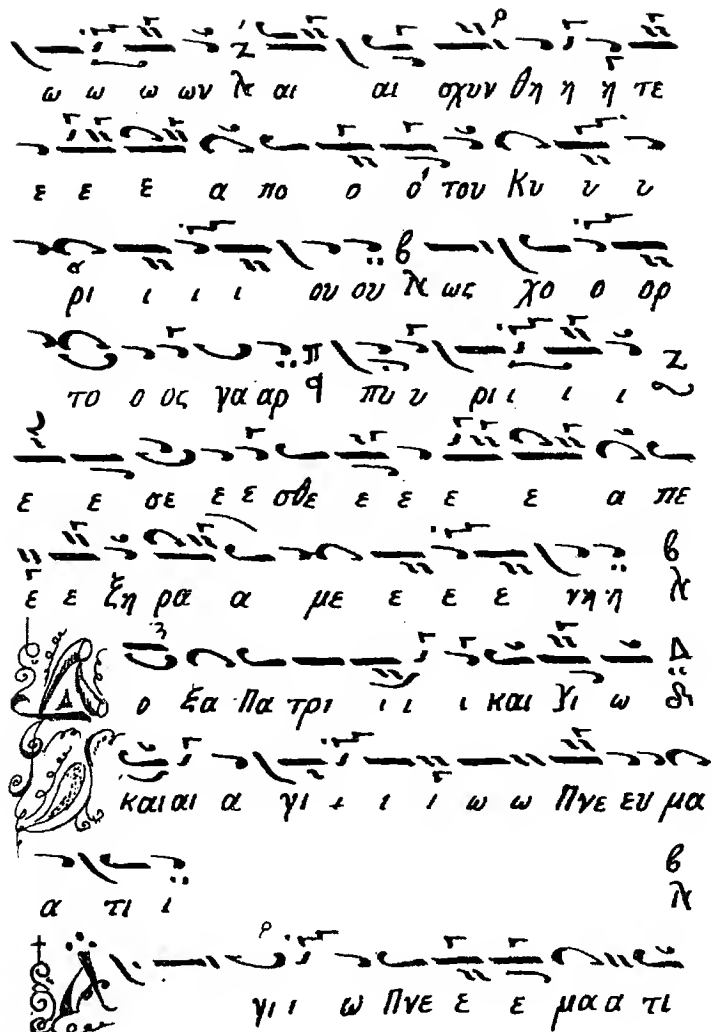 ω ω ω ων λ αι αι σχυν θη η η τε
ε ε ε α πο ο ο' του Κυ υ υ
ρι ι ι ι ου ου λ ως χο ο ορ
το ο ος γα αρ π πυ υ ρι ι ι ι
ε ε σε ε ε σθε ε ε ε ε α πε
ε ε ξη ρα α με ε ε ε νη η
Δ ο ξα Πα τρι ι ι ι και Υι ω
και αι α γι ι ι ι ω ω Πνε ευ μα
α τι ι
γι ι ω Πνε ε ε μα α τι